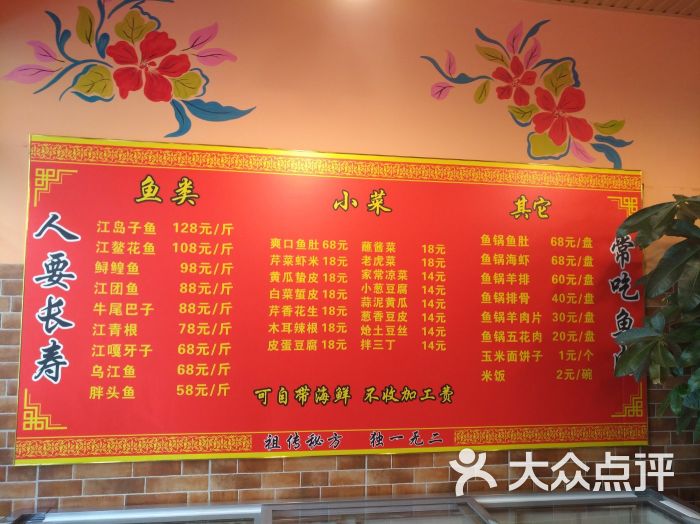 人要长寿
鱼类
江岛子鱼 128元/斤
江鳌花鱼 108元/斤
鲟鳇鱼 98元/斤
江团鱼 88元/斤
牛尾巴子 88元/斤
江青根 78元/斤
江嘎牙子 68元/斤
乌江鱼 68元/斤
胖头鱼 58元/斤
小菜
爽口鱼肚 68元
芹菜虾米 18元
黄瓜蛰皮 18元
白菜蜇皮 18元
芹香花生 18元
木耳辣根 18元
皮蛋豆腐 18元
蘸酱菜 18元
老虎菜 18元
家常凉菜 14元
小葱豆腐 14元
蒜泥黄瓜 14元
葱香豆皮 14元
炝土豆丝 14元
拌三丁 14元
其它
鱼锅鱼肚 68元/盘
鱼锅海虾 68元/盘
鱼锅羊排 60元/盘
鱼锅排骨 40元/盘
鱼锅羊肉片 30元/盘
鱼锅五花肉 20元/盘
玉米面饼子 1元/个
米饭 2元/碗
常吃鱼
可自带海鲜 不收加工费
祖传秘方 独一无二
大众点评